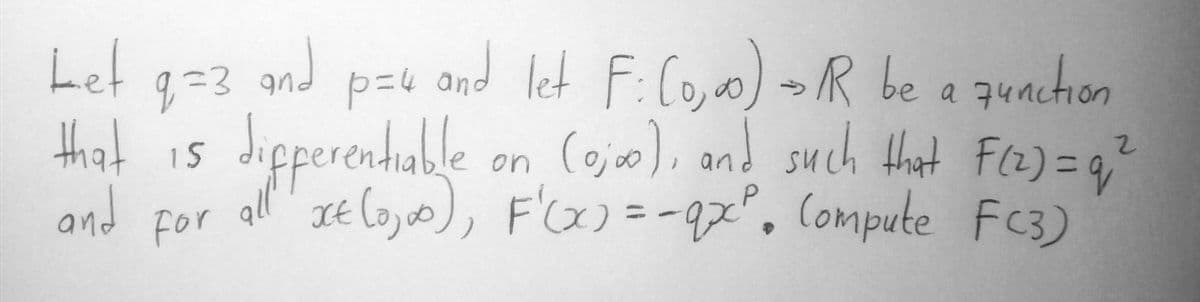 Let q=3 and p=4 and let F:(0,∞)→ℝ be a function
that is differentiable on (0;∞), and such that F(2)=q²
and for all x∈(0,∞), F'(x)=-qxᴾ. Compute F(3)